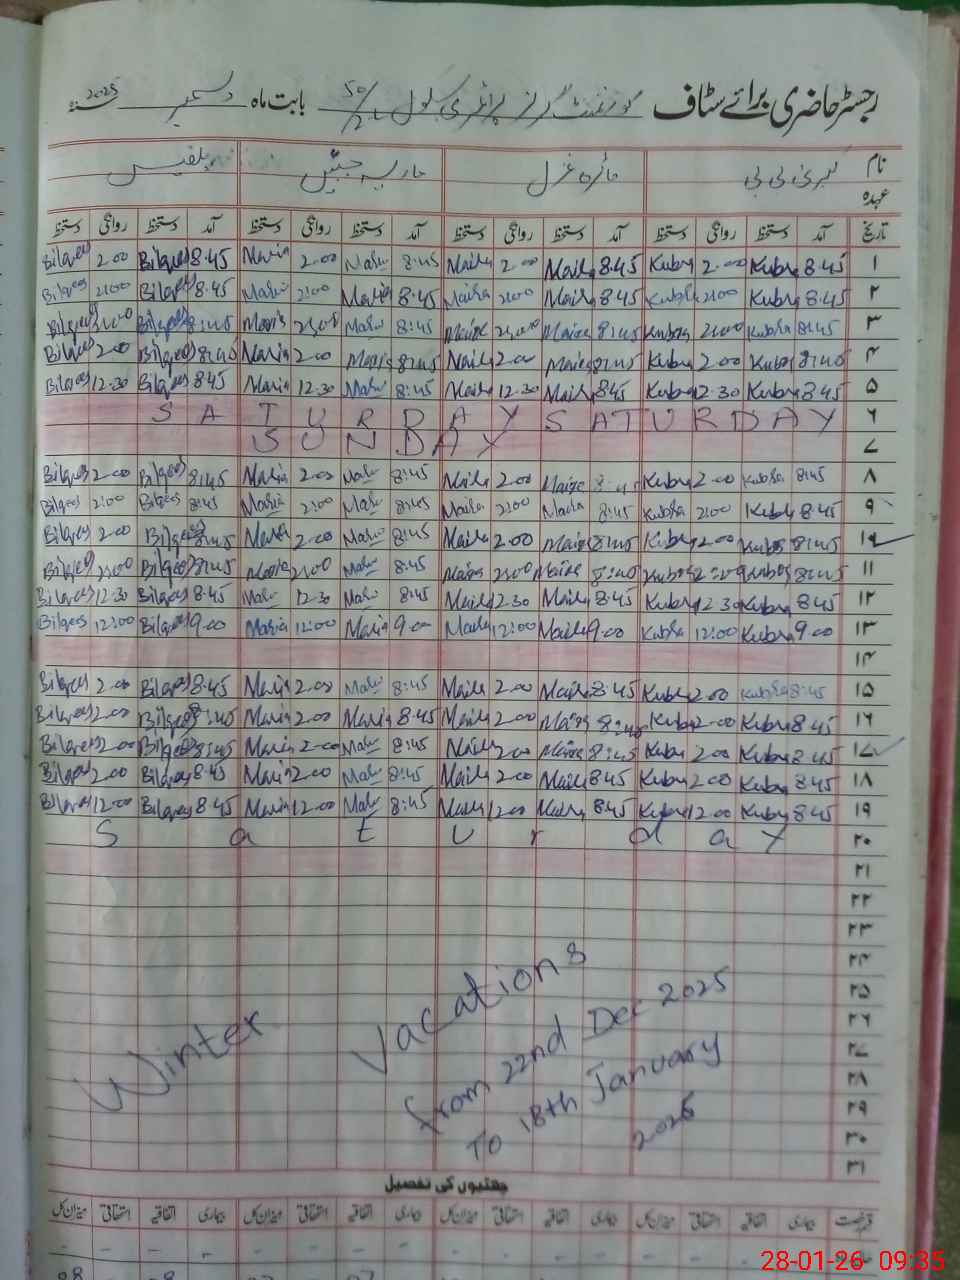 رجسٹر حاضری برائے سٹاف گورنمنٹ گرلز پرائمری سکول 50/2L بابت ماہ دسمبر 2025
نام کبریٰ بی بی مائرہ غزل ماریہ جبیں بلقیس
عہدہ
تاریخ آمد دستخط روانگی دستخط آمد دستخط روانگی دستخط آمد دستخط روانگی دستخط آمد دستخط روانگی دستخط
Bilqees 2.00 Bilqees 8.45 Maria 2.00 Maria 8:45 Maira 2.00 Maira 8.45 Kubra 2.00 Kubra 8.45 ۱
Bilqees 2:00 Bilqees 8.45 Maria 2:00 Maria 8.45 Maira 2:00 Maira 8.45 Kubra 2:00 Kubra 8.45 ۲
Bilqees 2:00 Bilqees 8:45 Maria 2:00 Maria 8:45 Maira 2:00 Maira 8:45 Kubra 2:00 Kubra 8:45 ۳
Bilqees 2.00 Bilqees 8:45 Maria 2.00 Maria 8:45 Maira 2.00 Maira 8:45 Kubra 2.00 Kubra 8:45 ۴
Bilqees 12.30 Bilqees 8.45 Maria 12.30 Maria 8:45 Maira 12.30 Maira 8.45 Kubra 12.30 Kubra 8.45 ۵
SATURDAY SATURDAY ۶
SUNDAY ۷
Bilqees 2.00 Bilqees 8:45 Maria 2.00 Maria 8:45 Maira 2.00 Maira 8:45 Kubra 2.00 Kubra 8:45 ۸
Bilqees 2:00 Bilqees 8:45 Maria 2:00 Maria 8:45 Maira 2:00 Maira 8:45 Kubra 2:00 Kubra 8.45 ۹
Bilqees 2.00 Bilqees 8:45 Maria 2.00 Maria 8:45 Maira 2.00 Maira 8:45 Kubra 2.00 Kubra 8:45 ۱۰
Bilqees 2:00 Bilqees 8:45 Maria 2:00 Maria 8.45 Maira 2:00 Maira 8:40 Kubra 2:00 Kubra 8:45 ۱۱
Bilqees 12.30 Bilqees 8.45 Maria 12.30 Maria 8:45 Maira 12.30 Maira 8.45 Kubra 12.30 Kubra 8.45 ۱۲
Bilqees 12:00 Bilqees 9.00 Maria 12:00 Maria 9.00 Maira 12:00 Maira 9.00 Kubra 12:00 Kubra 9.00 ۱۳
۱۴
Bilqees 2.00 Bilqees 8.45 Maria 2.00 Maria 8:45 Maira 2.00 Maira 8.45 Kubra 2.00 Kubra 8:45 ۱۵
Bilqees 2.00 Bilqees 8:45 Maria 2.00 Maria 8.45 Maira 2.00 Maira 8:45 Kubra 2.00 Kubra 8.45 ۱۶
Bilqees 2.00 Bilqees 8:45 Maria 2.00 Maria 8:45 Maira 2.00 Maira 8:45 Kubra 2.00 Kubra 8.45 ۱۷
Bilqees 2.00 Bilqees 8.45 Maria 2.00 Maria 8:45 Maira 2.00 Maira 8.45 Kubra 2.00 Kubra 8.45 ۱۸
Bilqees 12.00 Bilqees 8.45 Maria 12.00 Maria 8:45 Maira 12.00 Maira 8.45 Kubra 12.00 Kubra 8.45 ۱۹
Saturday ۲۰
۲۱
۲۲
۲۳
۲۴
۲۵
۲۶
۲۷
۲۸
۲۹
۳۰
۳۱
Winter Vacations
from 22nd Dec 2025
To 18th January
2026
چھٹیوں کی تفصیل
قسم رخصت بیماری اتفاقیہ استحقاقی میزان کل بیماری اتفاقیہ استحقاقی میزان کل بیماری اتفاقیہ استحقاقی میزان کل بیماری اتفاقیہ استحقاقی میزان کل
28-01-26 09:35